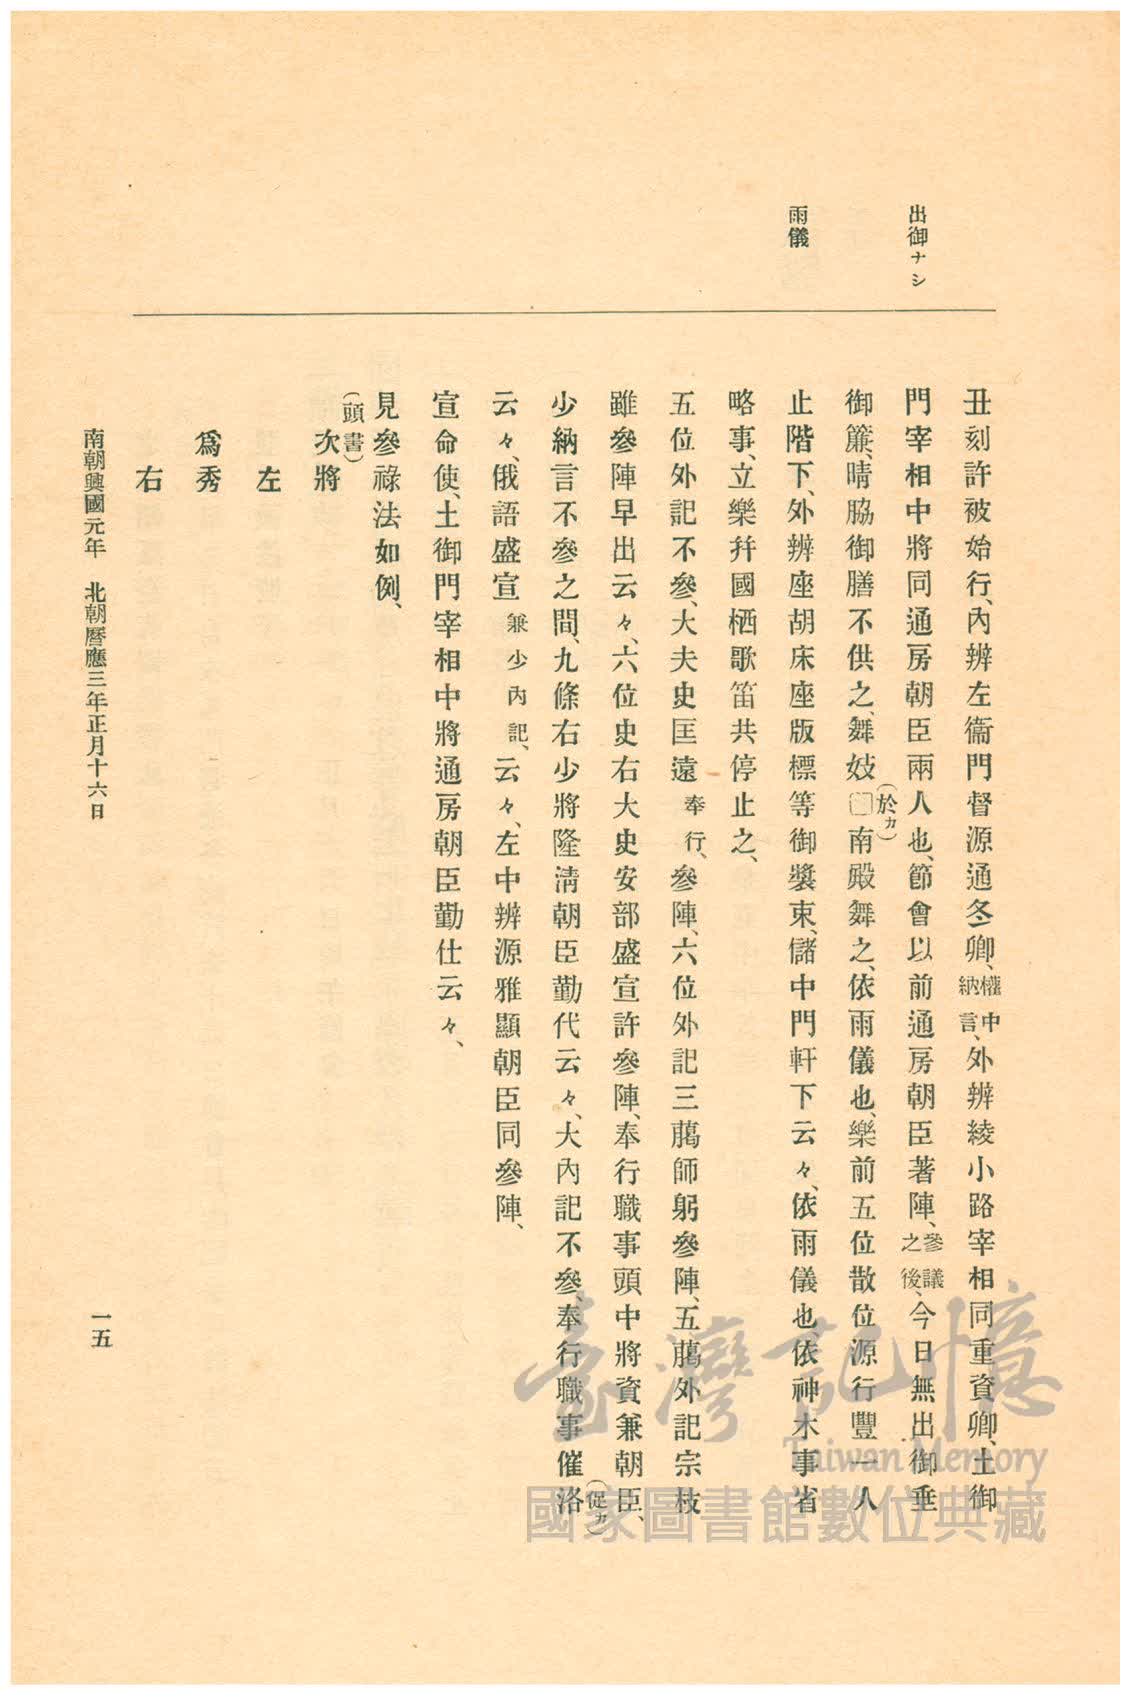 出御ナシ
雨儀
丑刻許被始行、內辨左衞門督源通冬卿、權中納言、外辨綾小路宰相同重資卿、土御
門宰相中將同通房朝臣兩人也、節會以前通房朝臣著陣、參議之後、今日無出御垂
御簾、晴脇御膳不供之、舞妓□(於カ)南殿舞之、依雨儀也、樂前五位散位源行豐一人
止階下、外辨座胡床座版標等御裝束、儲中門軒下云々、依雨儀也依神木事省
略事、立樂幷國栖歌笛共停止之、
五位外記不參、大夫史匡遠奉行、參陣、六位外記三﨟師躬參陣、五﨟外記宗枝
雖參陣早出云々、六位史右大史安部盛宣許參陣、奉行職事頭中將資兼朝臣、
少納言不參之間、九條右少將隆淸朝臣勤代云々、大內記不參、奉行職事催洛(促カ)
云々、俄語盛宣兼少內記、云々、左中辨源雅顯朝臣同參陣、
宣命使、土御門宰相中將通房朝臣勤仕云々、
見參祿法如例、
(頭書)
次將
左
爲秀
右
南朝興國元年 北朝曆應三年正月十六日
一五
臺灣記憶
Taiwan Memory
國家圖書館數位典藏